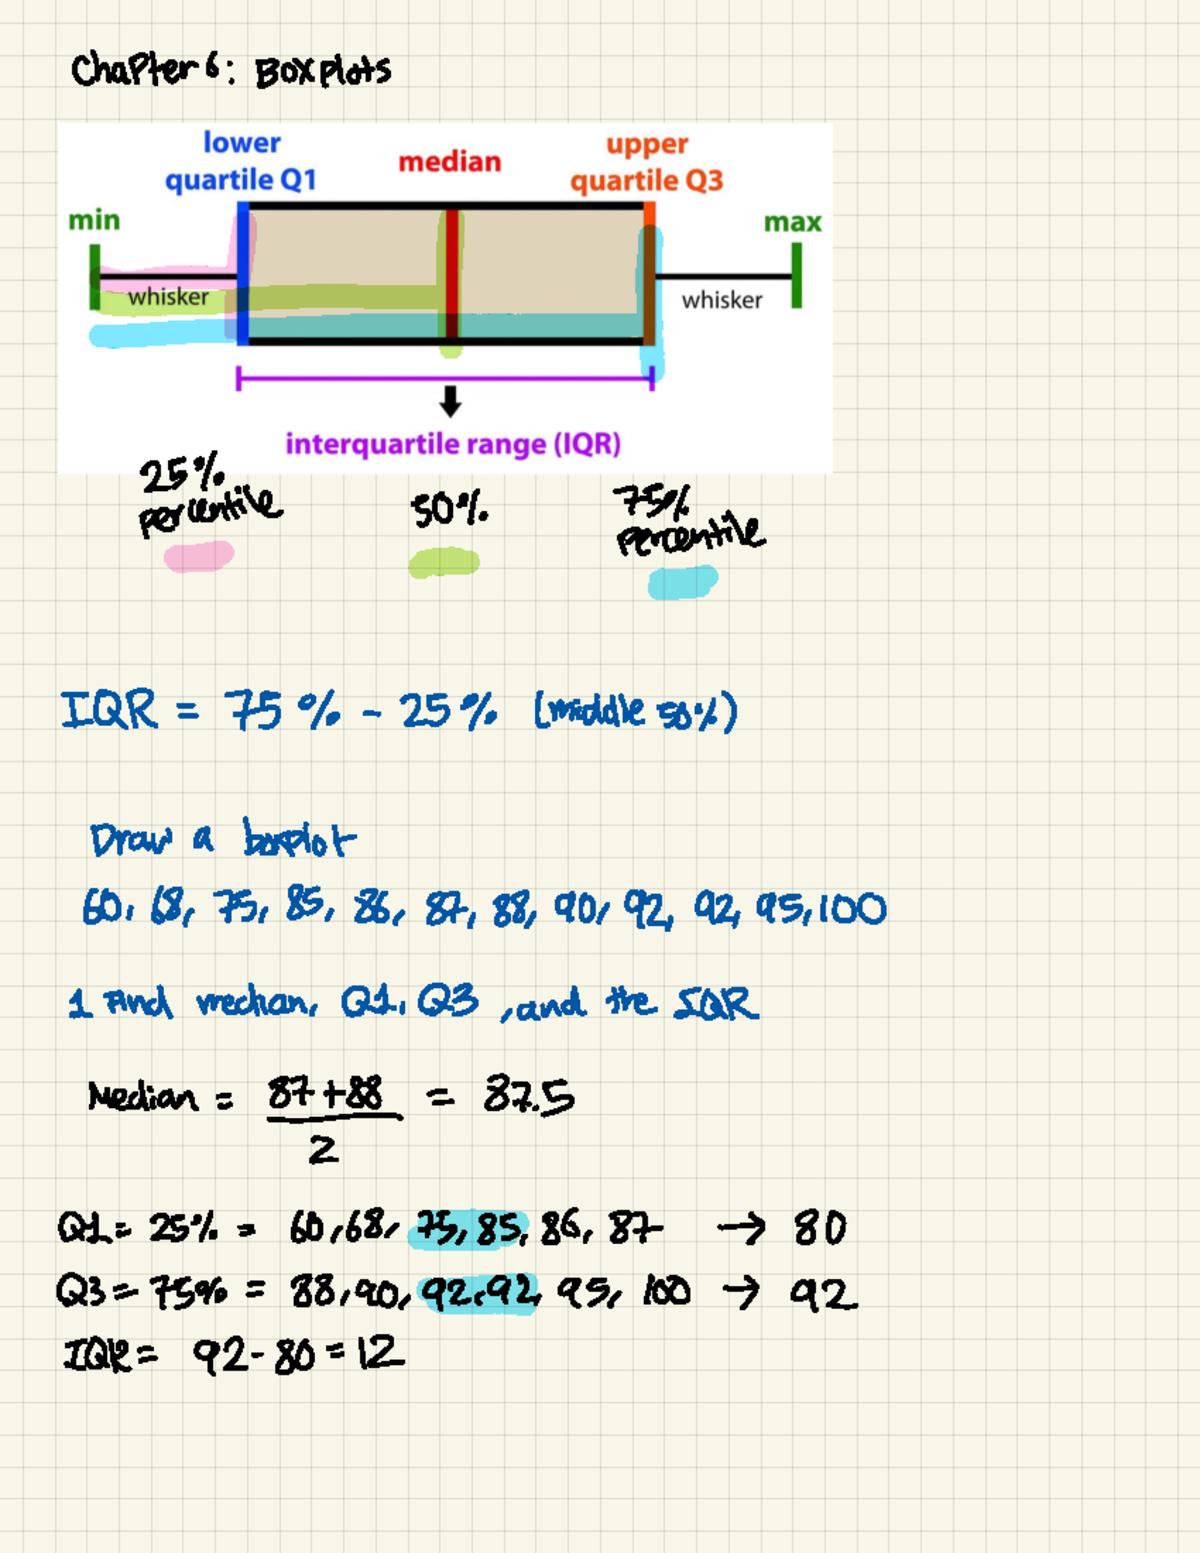 Chapter 6: Boxplots
lower quartile Q1
median
upper quartile Q3
min
max
whisker
whisker
interquartile range (IQR)
25% percentile
50%
75% percentile
IQR = 75% - 25% (middle 50%)
Draw a boxplot
60, 68, 75, 85, 86, 87, 88, 90, 92, 92, 95, 100
1 Find median, Q1, Q3, and the IQR
Median = 87+88 / 2 = 87.5
Q1 = 25% = 60, 68, 75, 85, 86, 87 → 80
Q3 = 75% = 88, 90, 92, 92, 95, 100 → 92
IQR = 92 - 80 = 12